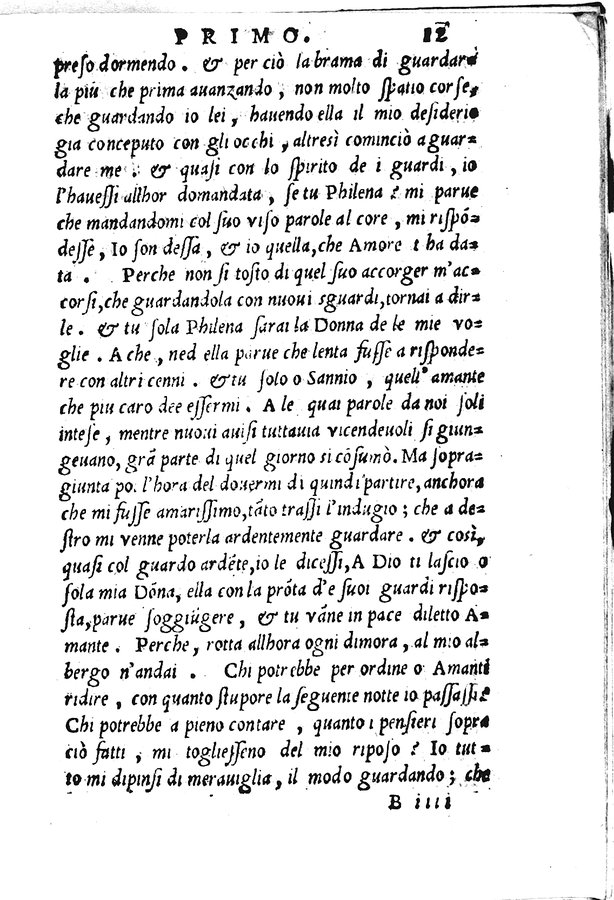 PRIMO. 12
preso dormendo. & per ciò la brama di guardarẻ
la più che prima auanzando, non molto spatio corse,
che guardando io lei, hauendo ella il mio desiderio
gia conceputo con gli occhi, altresì cominciò aguar=
dare me. & quasi con lo spirito de i guardi, io
l'hauessi allhor domandata, se tu Philena? mi parue
che mandandomi col suo viso parole al core, mi rispõ=
desse, Io son dessa, & io quella, che Amore t ha da=
ta. Perche non si tosto di quel suo accorger m'ac=
corsi, che guardandola con nuoui sguardi, tornai a dir=
le. & tu sola Philena sarai la Donna de le mie vo=
glie. A che, ned ella parue che lenta fusse a risponde=
re con altri cenni. & tu solo o Sannio, quell' amante
che piu caro dee essermi. A le quai parole da noi soli
intese, mentre nuoui auisi tuttauia vicendeuoli si giun=
geuano, grã parte di quel giorno si cõsumò. Ma sopra=
giunta poi l'hora del douermi di quindi partire, anchora
che mi fusse amarissimo, tãto trassi l'indugio; che a de=
stro mi venne poterla ardentemente guardare. & così,
quasi col guardo ardẽte, io le dicessi, A Dio ti lascio o
sola mia Dõna, ella con la prõta d'e suoi guardi rispo=
sta, parue soggiũgere, & tu vãne in pace diletto A=
mante. Perche, rotta allhora ogni dimora, al mio al=
bergo n'andai. Chi potrebbe per ordine o Amanti
ridire, con quanto stupore la seguente notte io passassi?
Chi potrebbe a pieno contare, quanto i pensieri sopra
ciò fatti, mi togliesseno del mio riposo? Io tut=
to mi dipinsi di merauiglia, il modo guardando; che
B iiii